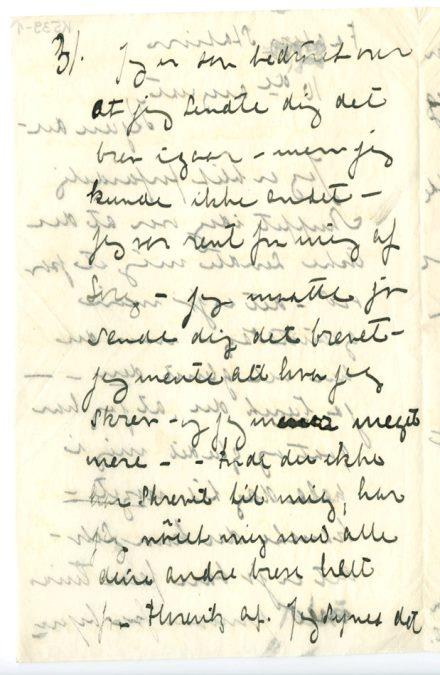 3/. Jeg er saa bedrøvet over
at jeg sendte dig det
brev igaar – men jeg
kunde ikke andet –
jeg var rent fra mig af
Sorg – jeg maatte jo
sende dig det brevet –
jeg mente alt hvad jeg
skrev – og jeg meget
mere – – du ikke
skrevet til mig, har
jeg nöiet mig med alle
dine andre breve helt
fra af. Jeg synes det